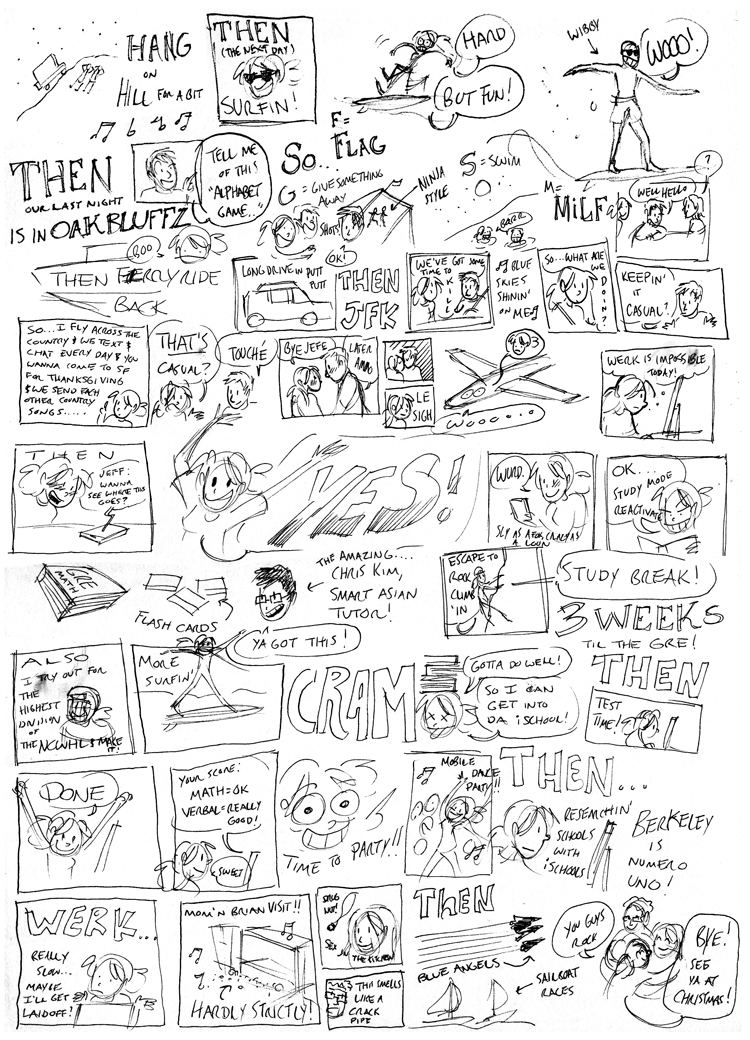 HANG
ON
HILL FOR A BIT
THEN
(THE NEXT DAY)
SURFIN!
HARD
BUT FUN!
WIBBY
WOOO!
THEN
OUR LAST NIGHT
IS IN OAK BLUFFZ
TELL ME
OF THIS
"ALPHABET
GAME..."
SO..
F=
FLAG
G = GIVE SOMETHING
AWAY
SHOTS?
OK!
NINJA
STYLE
S = SWIM
BARRR
M=
MILF
WELL HELLO
?
BOO
THEN FERRY RIDE
BACK
LONG DRIVE IN PUTT
PUTT
THEN
JFK
WE'VE GOT SOME
TIME TO
KILL
BLUE
SKIES
SHININ'
ON ME
SO...WHAT ARE
WE
DOIN?
KEEPIN'
IT
CASUAL?
SO...I FLY ACROSS THE
COUNTRY & WE TEXT &
CHAT EVERY DAY & YOU
WANNA COME TO SF
FOR THANKSGIVING
& WE SEND EACH
OTHER COUNTRY
SONGS.....
THAT'S
CASUAL?
TOUCHÉ
BYE JEFE
LATER
LE
SIGH
WOOO...
WERK IS IMPOSSIBLE
TODAY!
THEN
JEFF:
WANNA
SEE WHERE THIS
GOES?
YES!
WORD.
SLY AS A FOX, CRAZY AS
A LOON
OK....
STUDY MODE
REACTIVATE
GRE
MATH
FLASH CARDS
THE AMAZING....
CHRIS KIM,
SMART ASIAN
TUTOR!
ESCAPE TO
ROCK
CLIMB
'IN
STUDY BREAK!
3 WEEKS
TIL THE GRE!
ALSO
I TRY OUT FOR
THE
HIGHEST
DIVISION
OF
THE NCWHL & MAKE
IT!
MORE
SURFIN'
YA GOT THIS!
CRAM
GOTTA DO WELL!
SO I CAN
GET INTO
DA iSCHOOL!
THEN
TEST
TIME!
DONE
YOUR SCORE:
MATH=OK
VERBAL=REALLY
GOOD!
SWEET
TIME TO PARTY!!
MOBILE
DANCE
PARTY!!
THEN...
RESEARCHIN'
SCHOOLS
WITH
iSCHOOLS
BERKELEY
IS
NUMERO
UNO!
WERK...
REALLY
SLOW...
MAYBE
I'LL GET
LAIDOFF?
MOM'N BRIAN VISIT!!
HARDLY STRICTLY!
THE KITCHEN
THIS SMELLS
LIKE A
CRACK
PIPE
THEN
BLUE ANGELS
SAILBOAT
RACES
YOU GUYS
ROCK
BYE!
SEE
YA AT
CHRISTMAS!